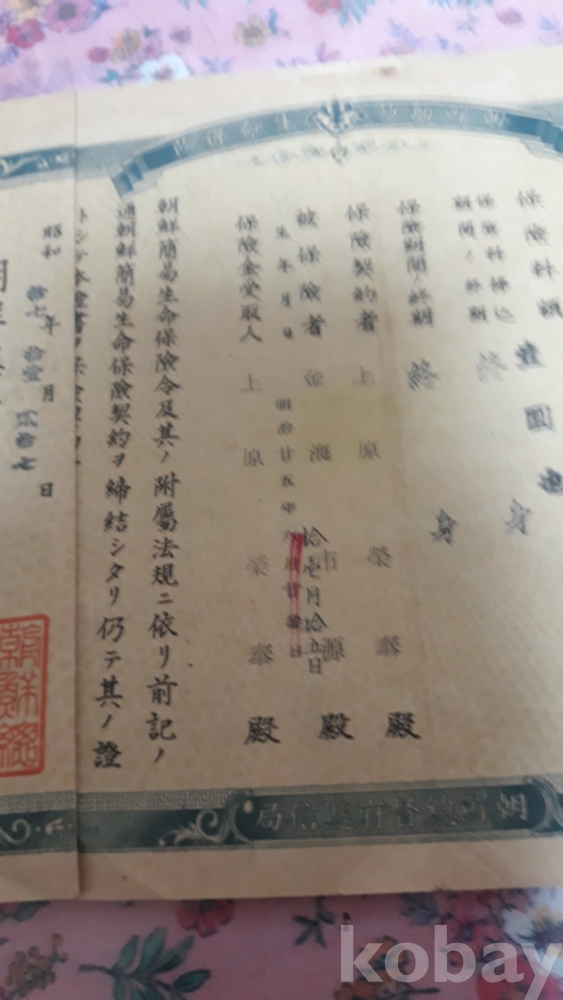 朝鮮簡易生命保險
保險料額 壹圓也
保險料拂込期間ノ終期 終身
保險期間ノ終期 終身
保險契約者 上原榮奉殿
被保險者 金海 源殿
生年月日 明治廿五年
拾壱月拾五日
保險金受取人 上原榮奉殿
朝鮮簡易生命保險令及其ノ附屬法規ニ依リ前記ノ
通朝鮮簡易生命保險契約ヲ締結シタリ仍テ其ノ證
昭和拾七年拾壹月貳拾七日
朝鮮總
朝鮮總督府遞信局
kobay